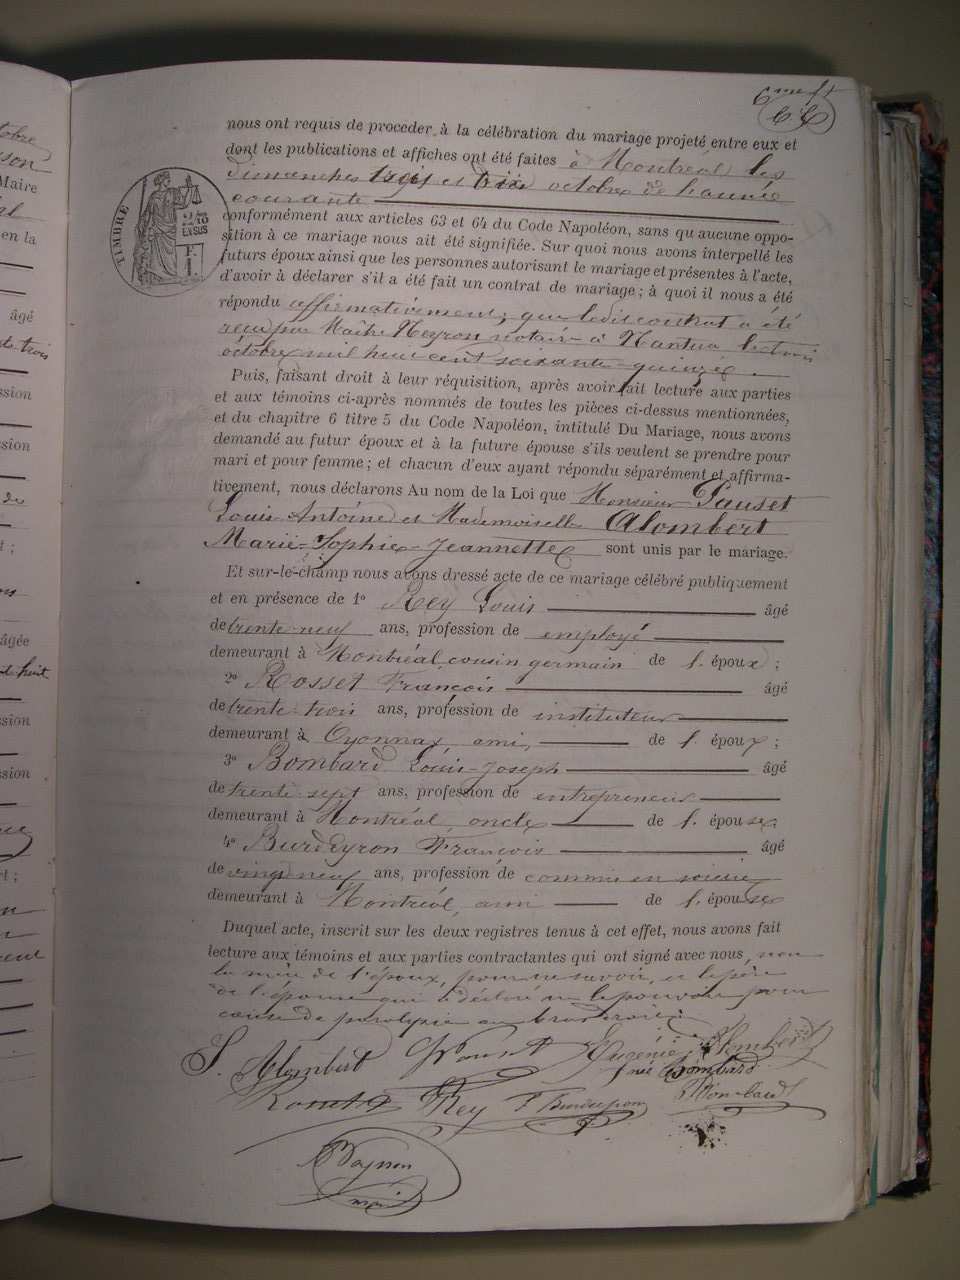 6me ft
nous ont requis de procéder, à la célébration du mariage projeté entre eux et
dont les publications et affiches ont été faites à Montréal les
dimanches trois et dix octobre de l'année
courante
conformément aux articles 63 et 64 du Code Napoléon, sans qu'aucune oppo-
sition à ce mariage nous ait été signifiée. Sur quoi nous avons interpellé les
futurs époux ainsi que les personnes autorisant le mariage et présentes à l'acte,
d'avoir à déclarer s'il a été fait un contrat de mariage ; à quoi il nous a été
répondu affirmativement, que ledit contrat a été
reçu par Maître Neyron notaire à Nantua le trois
octobre mil huit cent soixante-quinze.
Puis, faisant droit à leur réquisition, après avoir fait lecture aux parties
et aux témoins ci-après nommés de toutes les pièces ci-dessus mentionnées,
et du chapitre 6 titre 5 du Code Napoléon, intitulé Du Mariage, nous avons
demandé au futur époux et à la future épouse s'ils veulent se prendre pour
mari et pour femme ; et chacun d'eux ayant répondu séparément et affirma-
tivement, nous déclarons Au nom de la Loi que Monsieur Pauset
Louis-Antoine et Mademoiselle Alombert
Marie-Sophie-Jeannette sont unis par le mariage.
Et sur-le-champ nous avons dressé acte de ce mariage célébré publiquement
et en présence de 1o Rey Louis âgé
de trente-neuf ans, profession de employé
demeurant à Montréal, cousin germain de l. époux ;
2o Rosset François âgé
de trente-trois ans, profession de instituteur
demeurant à Oyonnax, ami, de l. époux ;
3o Bombard Louis-Joseph âgé
de trente-sept ans, profession de entrepreneur
demeurant à Montréal, oncle de l. épouse,
4o Burdeyron François âgé
de vingt-neuf ans, profession de commis en soierie
demeurant à Montréal, ami de l. épouse
Duquel acte, inscrit sur les deux registres tenus à cet effet, nous avons fait
lecture aux témoins et aux parties contractantes qui ont signé avec nous, non
la mère de l'époux, pour ne savoir, et le père
de l'épouse qui a déclaré ne le pouvoir pour
cause de paralysie au bras droit.
S. Alombert Pauset Eugénie Alombert
née Bombard
Rey F Burdeyron Bombard
maire
TIMBRE
2/10
EN SUS